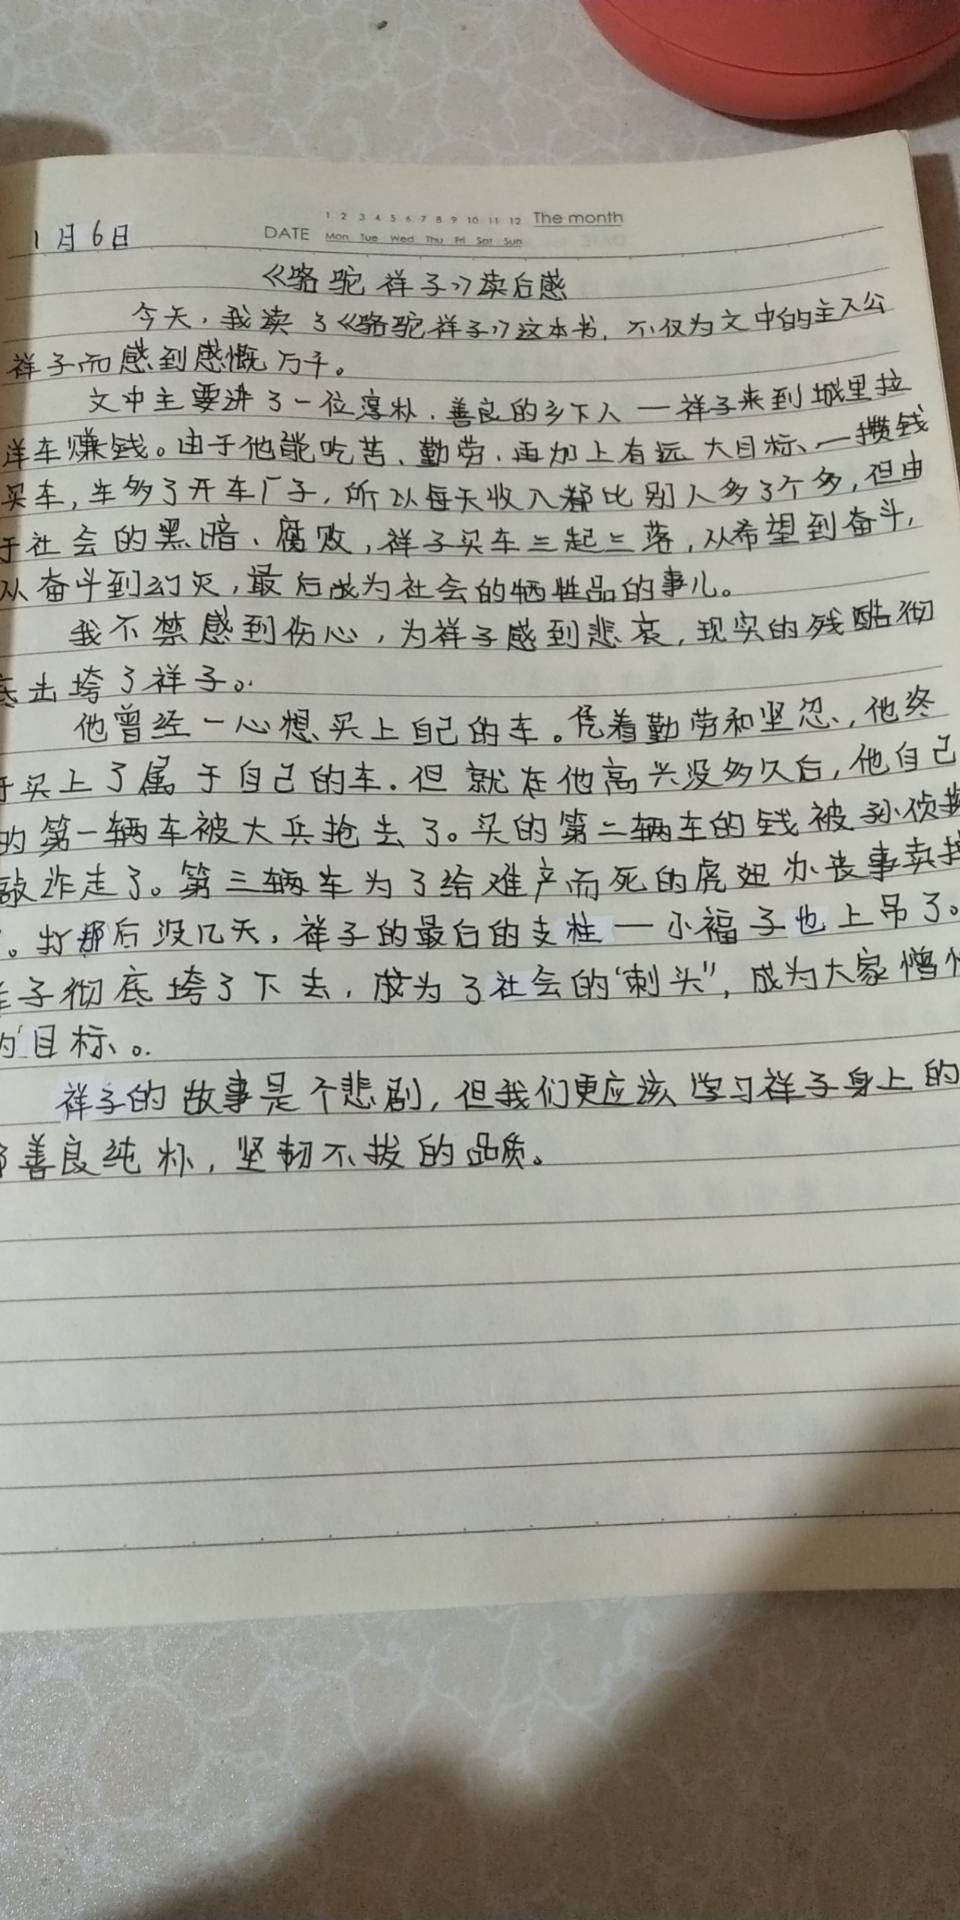 1 2 3 4 5 6 7 8 9 10 11 12 The month
1月6日
DATE Mon Tue Wed Thu Fri Sat Sun
《骆驼祥子》读后感
今天，我读了《骆驼祥子》这本书，不仅为文中的主人公
祥子而感到感慨万千。
文中主要讲了一位淳朴、善良的乡下人一祥子来到城里拉
洋车赚钱。由于他能吃苦、勤劳、再加上有远大目标、一攒钱
买车，车多了开车厂子，所以每天收入都比别人多了个多，但由
于社会的黑暗、腐败，祥子买车三起三落，从希望到奋斗，
从奋斗到幻灭，最后成为社会的牺牲品的事儿。
我不禁感到伤心，为祥子感到悲哀，现实的残酷彻
底击垮了祥子。
他曾经一心想买上自己的车。凭着勤劳和坚忍，他终
于买上了属于自己的车。但就在他高兴没多久后，他自己
的第一辆车被大兵抢去了。买的第二辆车的钱被孙侦探
敲诈走了。第三辆车为了给难产而死的虎妞办丧事卖掉
。打那后没几天，祥子的最后的支柱一小福子也上吊了。
祥子彻底垮了下去，成为了社会的“刺头”，成为大家憎
的目标。
祥子的故事是个悲剧，但我们更应该学习祥子身上的
善良纯朴，坚韧不拔的品质。